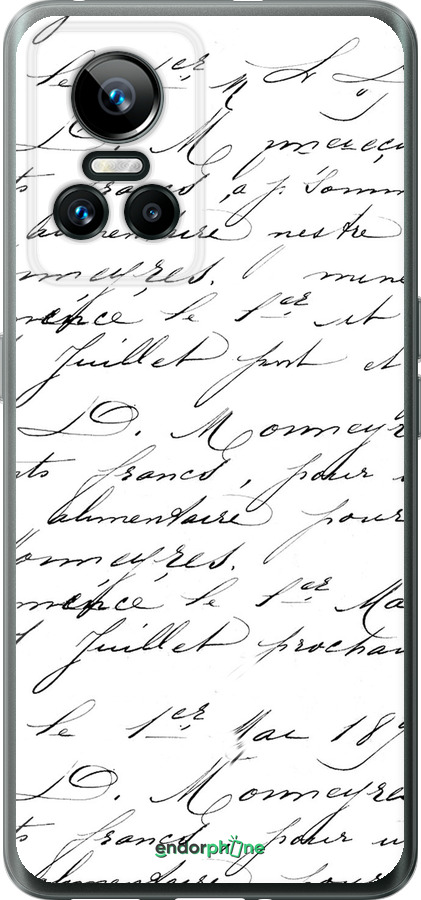 le 1er
D. M
ts francs, a p. Somm
alimentaire nestre
mmeyres. mme
mence le 1er et
Juillet port et
D. Monneyre
ts francs, pour
alimentaire pour
onneyres.
mence le 1er Ma
t Juillet prochai
le 1er Mai 189
D. Monneyre
ts francs, pour u
endorphone
alimentaire pour